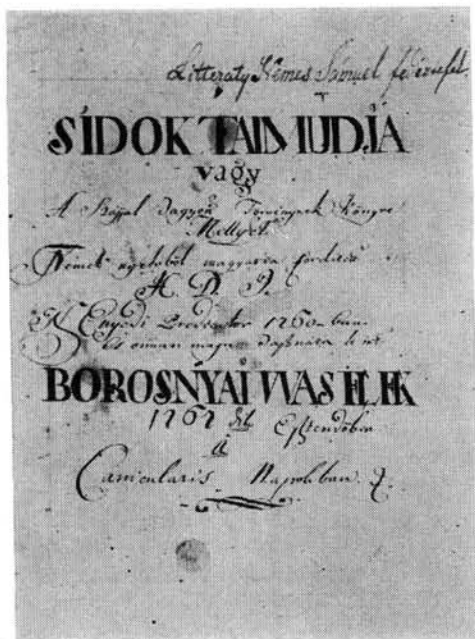 Litteraty Nemes Sámuel
SÍDOK TALMUDJA
vagy
A Szájjal Törvények Könyve
Mellyet
Német nyelvből magyarra fordított
H. D. J.
N Enyedi 1760-ban
És onnan maga le írt
BOROSNYAI VVAS ELEK
1767 dik Esztendőben
á
Canicularis Napokban